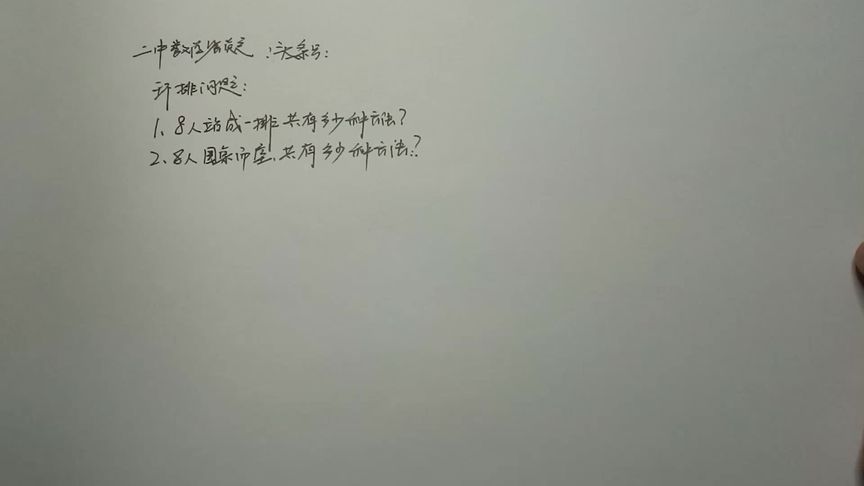 二中数 : 头条号:
环排问题:
1、8人站成一排共有多少种方法?
2、8人围桌而坐,共有多少种方法?